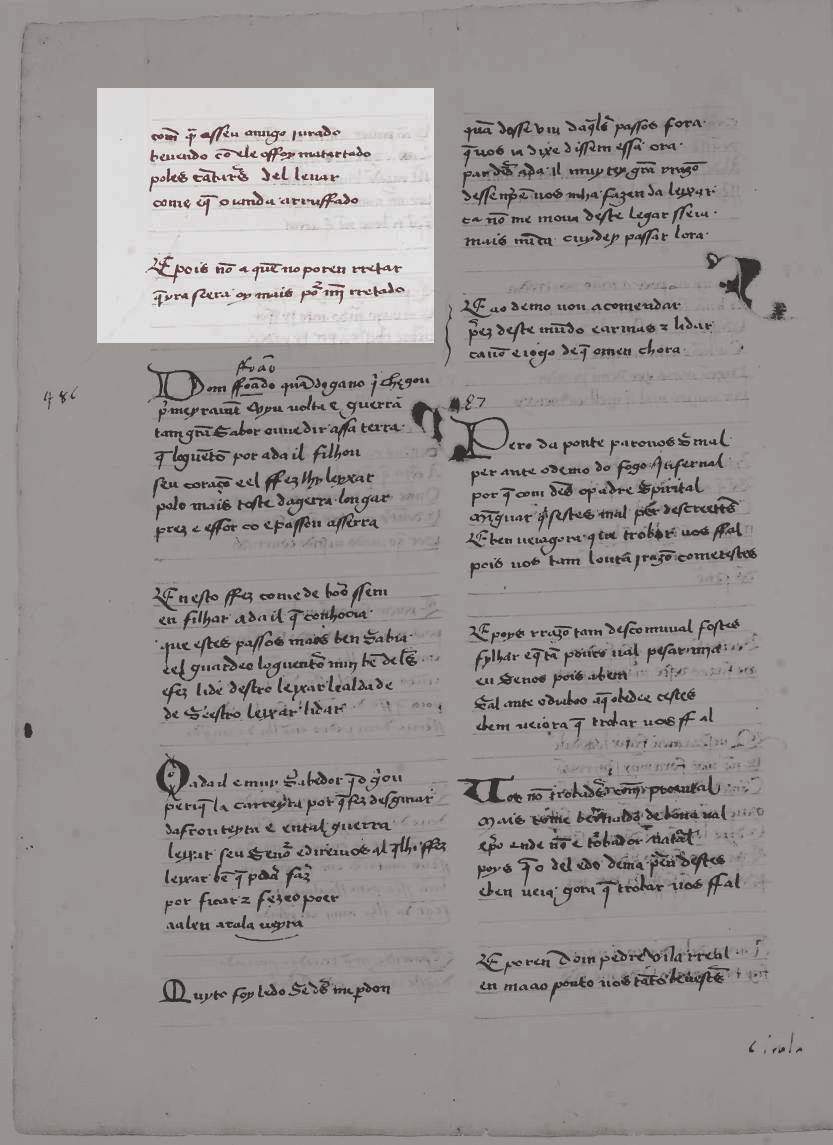 com̄ q̄ asseu amigo iurado
beuendo cō ele offoy matar tado
poles cātarēs del leuar
come eq̄ o uanda arruffado
E pois nō a quē no poren rretar
q̄yra seera oy mais por mī rretado
ffoāo
486
Dom ffoādo quādo gano i chegou
p̄meyramēt e vyu volta e guerrā
tam grā Sabor ouue dir assa terra
q̄ loguētō por ada il filhou
seu coraçō eel ffez lhy leyxar
polo mais toste dagerra longar
prez e essor co epassou asserra
En esto ffez come de boō ssem
en filhar ada il q̄ conhocia
que estes passos maos ben Sabia
eel guardeo loguentō muy bē delēs
efez li de destro leyxar lealdade
de Seestro leyxar lidar
O adail e muy Sabedor
per aq̄la carreyra por q̄ fez desguiar
da fronteyra e en tal guerra
leyxar seu Senor
leyxar bē q̄ podia faz
por ficar z fezeo poer
aalen atala ueyra
Muyto foy ledo Se ds̄ me pdon
quā desse viu daq̄les passos fora
q̄ uos ia dixe dissem essa ora
par dēs ada il muy tey grā rrazō
dessenp̄ē uos mha fazenda leyxar
ca nō me moua deste logar sseu
mais nūca cuydey passar lora
E ao demo uou acomendar
prez deste mūdo e armas z lidar
ca nō e iogo de q̄ omen chora
487
Pero da ponte paro uos S mal
per ante odemo do fogo īfernal
por q̄ com dēs o padre Spirital
mīguar q̄sestes mal per descreestes
E ben ueiagora que trobar uos ffal
pois uos tam louca rrazō cometestes
E poys rrazō tam descomuual fostes
fylhar e q̄ tā pouco ual pesar mia
eu Se nos pois a ben
Sal ante o diaboo aq̄ obedeecestes
eben ueiora q̄ trobar uos ff al
Uos nō trobades come proençal
Mais come bernaldo de bona ual
epo ende nō e trobador natal
poys q̄ o del e do dema prēdestes
eben ueia gora q̄ trobar uos ffal
E poren Dom pedre Vila rreal
en maao ponto uos tāto beuestēs